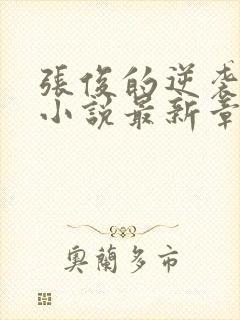 張俊的逆袭
小說最新章
奧蘭多市